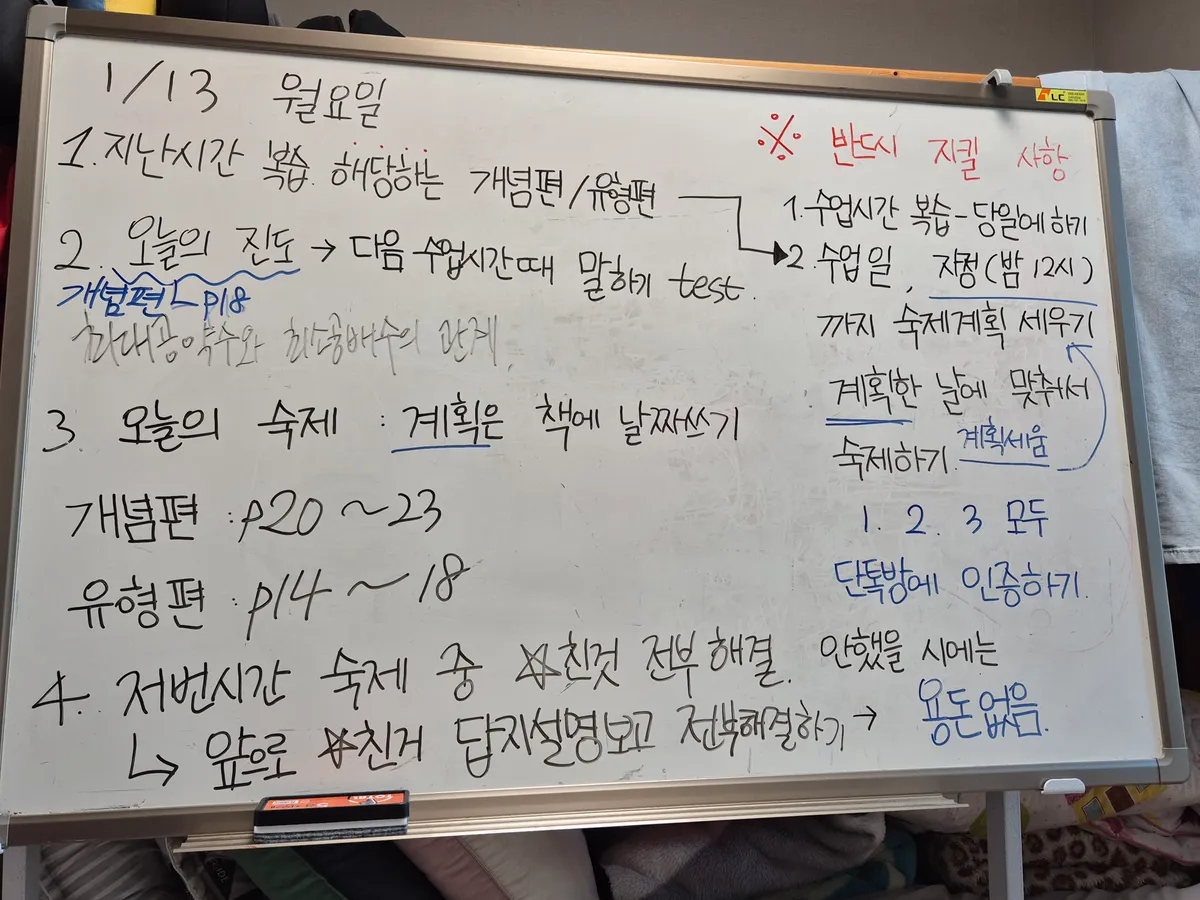 1/13 월요일
1. 지난시간 복습. 해당하는 개념편/유형편
2. 오늘의 진도 → 다음 수업시간때 말하기 test.
개념편 └ p18
최대공약수와 최소공배수의 관계
3. 오늘의 숙제 : 계획은 책에 날짜쓰기
개념편 : p20 ~ 23
유형편 : p14 ~ 18
4. 저번시간 숙제 중 ☆친것 전부 해결.
↳ 앞으로 ☆친거 답지설명보고 전부해결하기 →
※ 반드시 지킬 사항
1. 수업시간 복습 - 당일에 하기
2. 수업일, 자정(밤 12시)
까지 숙제계획 세우기
계획한 날에 맞춰서
숙제하기. 계획세움
1. 2. 3 모두
단톡방에 인증하기.
안했을 시에는
용돈없음.
LC